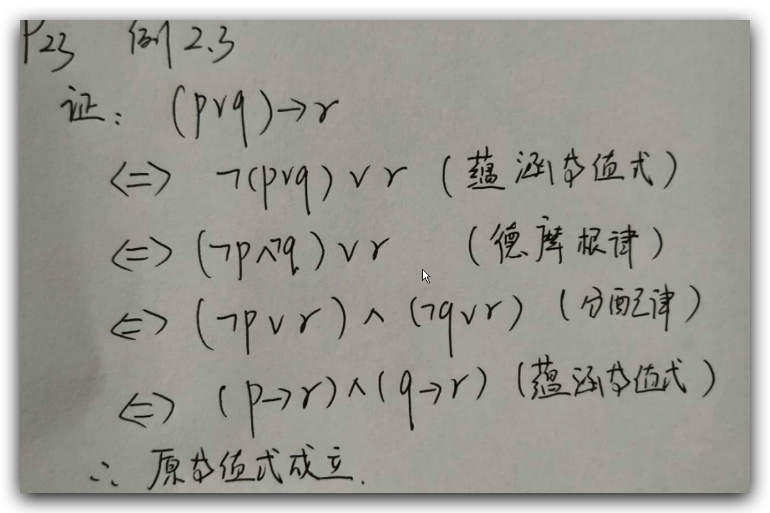 P23 例2.3
证: (p∨q)→r
<=> ¬(p∨q)∨r (蕴涵等值式)
<=> (¬p∧¬q)∨r (德摩根律)
<=> (¬p∨r)∧(¬q∨r) (分配律)
<=> (p→r)∧(q→r) (蕴涵等值式)
∴ 原等值式成立.